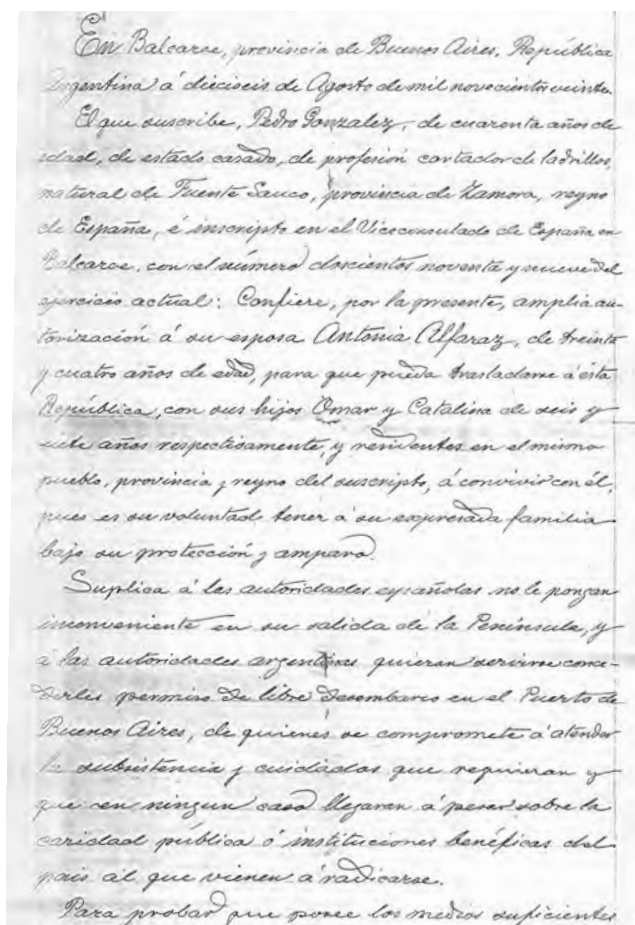 En Balcarce, provincia de Buenos Aires, República
Argentina á dieciseis de Agosto de mil novecientos veinte.
El que suscribe, Pedro Gonzalez, de cuarenta años de
edad, de estado casado, de profesión cortador de ladrillos,
natural de Fuente Sauco, provincia de Zamora, reyno
de España, é inscripto en el Viceconsulado de España en
Balcarce, con el número doscientos noventa y nueve del
ejercicio actual: Confiere, por la presente, amplia au-
torización á su esposa Antonia Alfaraz, de treinta
y cuatro años de edad, para que pueda trasladarse á ésta
República, con sus hijos Omar y Catalina de seis y
siete años respectivamente, y residentes en el mismo
pueblo, provincia y reyno del suscripto, á convivir con él,
pues es su voluntad tener á su expresada familia
bajo su protección y amparo.
Suplica á las autoridades españolas no le pongan
inconveniente en su salida de la Península, y
á las autoridades argentinas quieran servirse conce-
derles permiso de libre desembarco en el Puerto de
Buenos Aires, de quienes se compromete á atender
la subsistencia y cuidados que requieran y
que en ningun caso llegaran á pesar sobre la
caridad pública ó instituciones benéficas del
pais al que vienen a radicarse.
Para probar que posee los medios suficientes